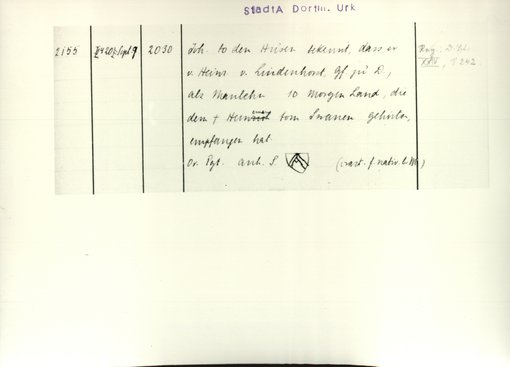 StadtA Dortm. Urk
2155 1420 Sept 9 2030 Joh. to den Hüsen bekennt, dass er
v. Heinr. v. Lindenhorst, Gf. zu D.,
als Manlehn 10 Morgen Land, die
dem † Heinrich tom Swanen gehörten,
empfangen hat.
Or. Pgt. anh. S. (vast. f. nativ. b. M.)
Reg. D. Ub.
XXIV, S. 242